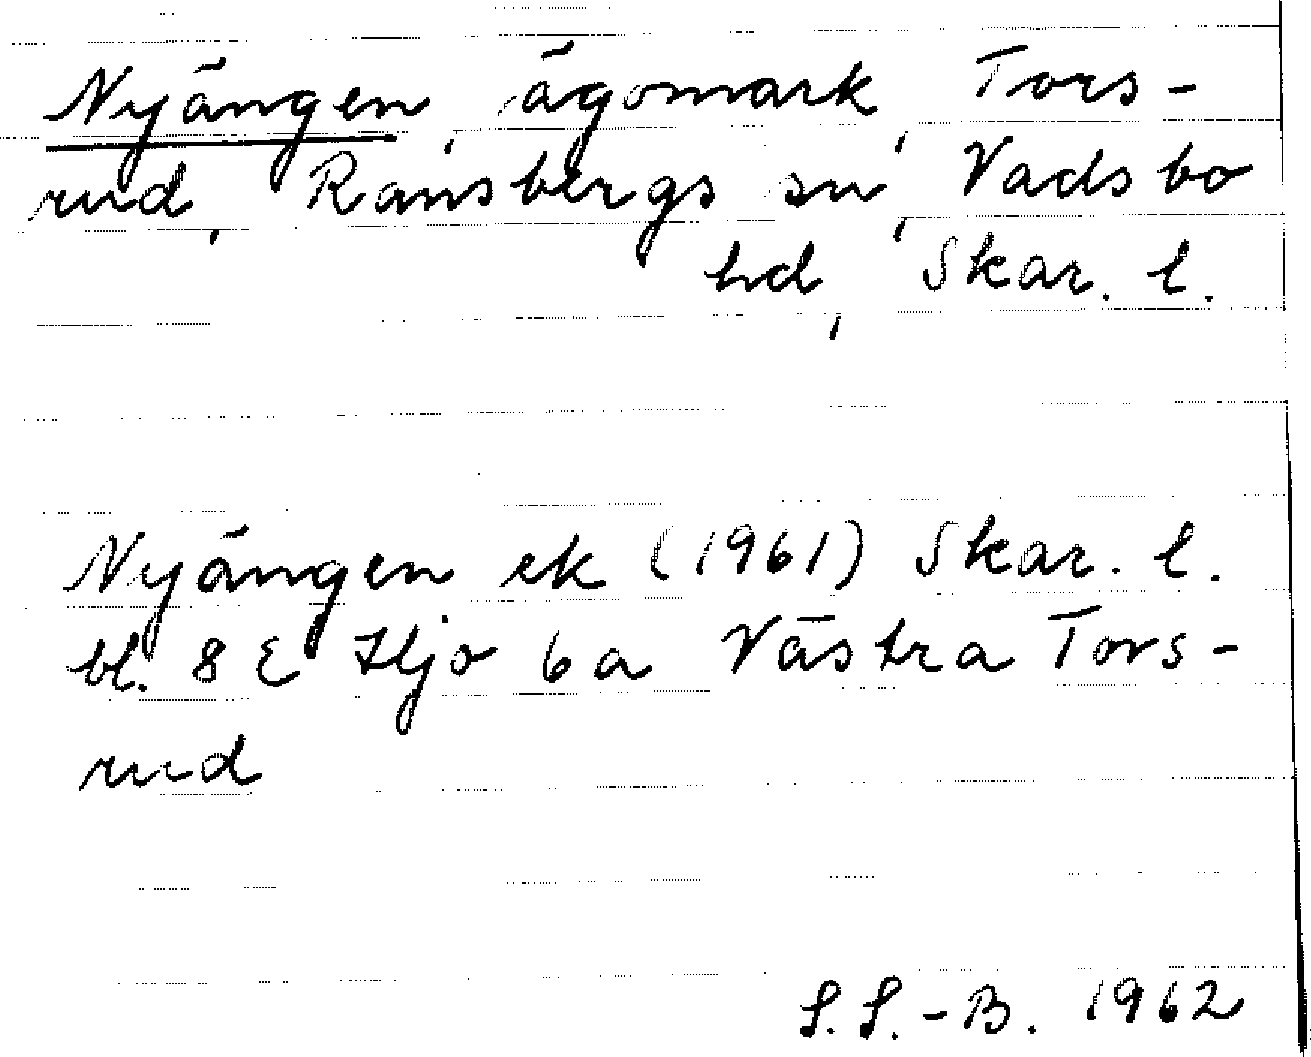 Nyängen, ägomark, Tors-
rud, Ransbergs sn, Vadsbo
hd, Skar. l.
Nyängen ek (1961) Skar. l.
bl. 8 E Hjo 6 a Västra Tors-
rud
S.S.-B. 1962